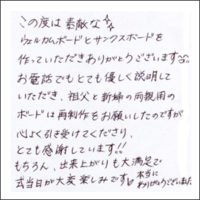 この度は素敵な
ウェルカムボードとサンクスボードを
作っていただきありがとうございます!!
お電話でもとても優しく説明して
いただき、祖父と新婦の両親用の
ボードは再制作をお願いしたのですが
心よく引き受けてくださり、
とても感謝しています!!
もちろん、出来上がりも大満足で
式当日が大変楽しみです!!
本当に
ありがとうございました